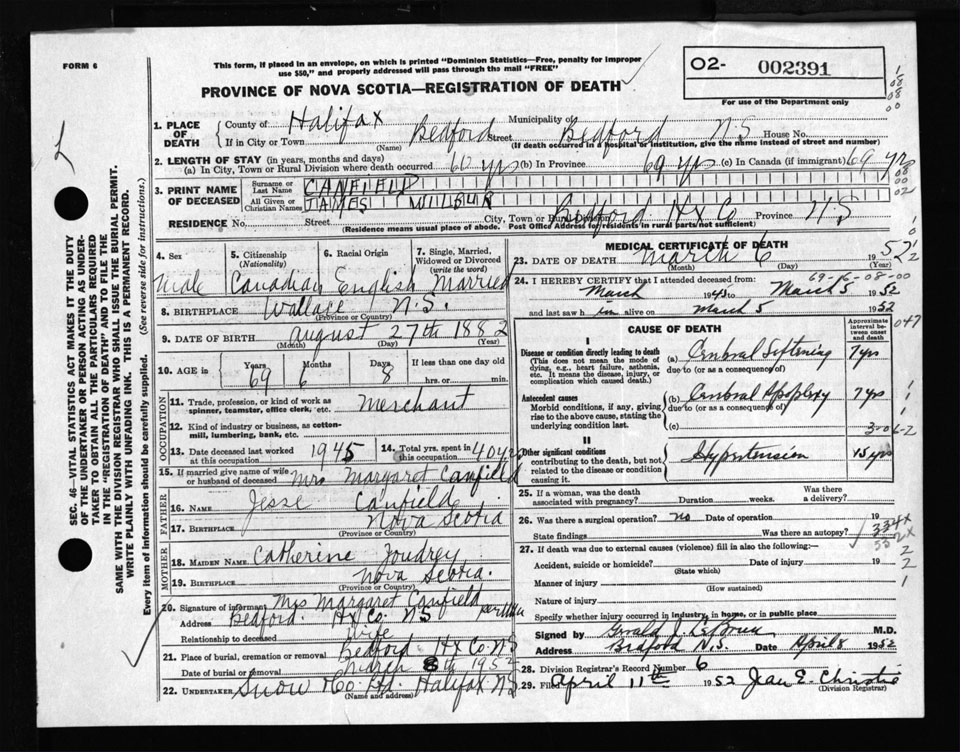 FORM 6
This form, if placed in an envelope, on which is printed "Dominion Statistics—Free, penalty for improper
use $50," and properly addressed will pass through the mail "FREE"
O2- 002391
For use of the Department only
PROVINCE OF NOVA SCOTIA—REGISTRATION OF DEATH
1. PLACE OF DEATH
County of Halifax Municipality of
If in City or Town Bedford Street Bedford N.S House No.
(Name) (If death occurred in a hospital or institution, give the name instead of street and number)
2. LENGTH OF STAY (in years, months and days)
(a) In City, Town or Rural Division where death occurred 60 yrs (b) In Province 69 yrs (c) In Canada (if immigrant) 69 yrs
3. PRINT NAME OF DECEASED
Surname or Last Name CANFIELD
All Given or Christian Names JAMES WILBUR
RESIDENCE No. Street City, Town or Rural Division Bedford Hx Co Province N S
(Residence means usual place of abode. Post Office Address for residents in rural parts not sufficient)
4. Sex Male
5. Citizenship (Nationality) Canadian
6. Racial Origin English
7. Single, Married, Widowed or Divorced (write the word) Married
8. BIRTHPLACE Wallace N.S.
(Province or Country)
9. DATE OF BIRTH August 27th 1882
(Month) (Day) (Year)
10. AGE in Years 69 Months 6 Days 8 If less than one day old
hrs. or min.
OCCUPATION
11. Trade, profession, or kind of work as spinner, teamster, office clerk, etc. Merchant
12. Kind of industry or business, as cotton-mill, lumbering, bank, etc.
13. Date deceased last worked at this occupation 1945
14. Total yrs. spent in this occupation 40 yrs
15. If married give name of wife or husband of deceased Mrs Margaret Canfield
FATHER
16. Name Jesse Canfield
17. Birthplace Nova Scotia
(Province or Country)
MOTHER
18. MAIDEN NAME Catherine Joudrey
19. BIRTHPLACE Nova Scotia.
(Province or Country)
20. Signature of informant Mrs Margaret Canfield
Address Bedford. Hx Co. N S
Relationship to deceased wife
21. Place of burial, cremation or removal Bedford Hx Co. N.S
Date of burial or removal March 8th 1952
22. UNDERTAKER Snow & Co. Ltd. Halifax NS
(Name and address)
MEDICAL CERTIFICATE OF DEATH
23. DATE OF DEATH March 6 1952
(Month) (Day) (Year)
69-16-08-00
24. I HEREBY CERTIFY that I attended deceased from:
March 1945 to March 5 1952
and last saw him alive on March 5 1952
CAUSE OF DEATH
Approximate interval between onset and death
047
I
Disease or condition directly leading to death
(This does not mean the mode of dying, e.g., heart failure, asthenia, etc. It means the disease, injury, or complication which caused death.)
(a) Cerebral Softening 7 yrs
due to (or as a consequence of)
Antecedent causes
Morbid conditions, if any, giving rise to the above cause, stating the underlying condition last.
(b) Cerebral Apoplexy 7 yrs
due to (or as a consequence of)
(c)
3-06-2
II
Other significant conditions
contributing to the death, but not related to the disease or condition causing it.
Hypertension 15 yrs
25. If a woman, was the death associated with pregnancy? Duration weeks. Was there a delivery?
26. Was there a surgical operation? No Date of operation 19
State findings Was there an autopsy?
334X
27. If death was due to external causes (violence) fill in also the following:—
Accident, suicide or homicide? Date of injury 19
(State which)
Manner of injury
(How sustained)
Nature of injury
Specify whether injury occurred in industry, in home, or in public place
Signed by M.D.
Address Bedford N.S. Date April 8 1952
28. Division Registrar's Record Number 6
29. Filed April 11th 1952 Jean E. Christie
(Division Registrar)
SEC. 46—VITAL STATISTICS ACT MAKES IT THE DUTY
OF THE UNDERTAKER OR PERSON ACTING AS UNDER-
TAKER TO OBTAIN ALL THE PARTICULARS REQUIRED
IN THE "REGISTRATION OF DEATH" AND TO FILE THE
SAME WITH THE DIVISION REGISTRAR WHO SHALL ISSUE THE BURIAL PERMIT.
WRITE PLAINLY WITH UNFADING INK. THIS IS A PERMANENT RECORD.
Every item of information should be carefully supplied. (See reverse side for instructions.)